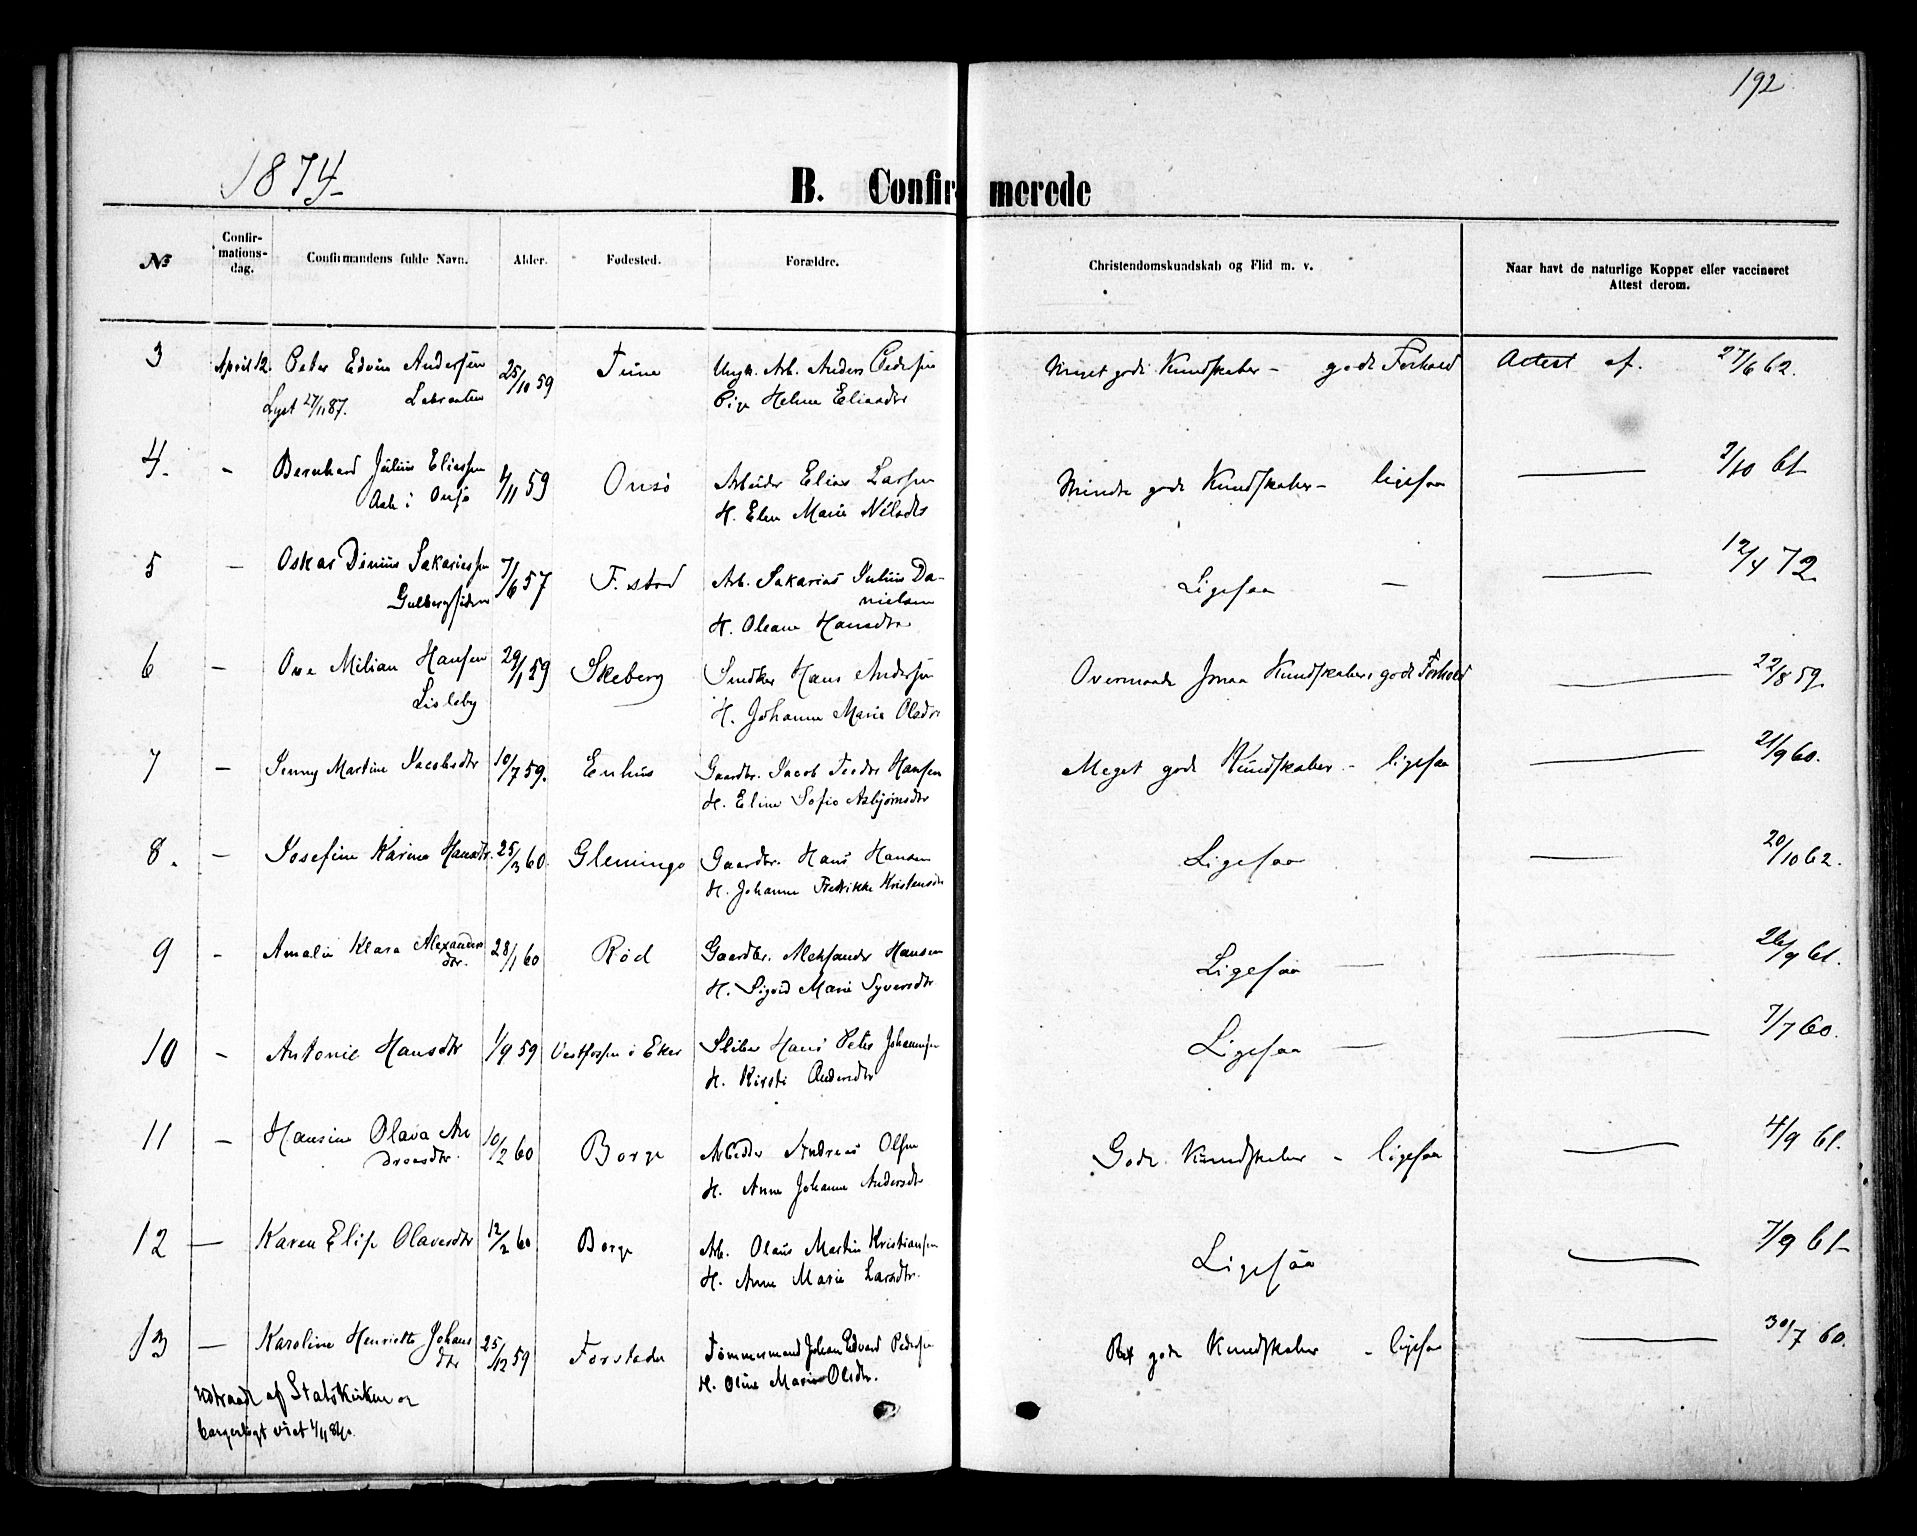 192
1874
B. Confirmerede
No Confirmationsdag. Confirmandens fulde Navn. Alder. Fødested. Forældre. Christendomskundskab og Flid m. v. Naar havt de naturlige Kopper eller vaccineret Attest derom.
3 April 12. Peter Edvin Andersen 25/10 59 Tune Ungk. Arb. Anders Pedersen Meget gode Kundskaber - godt Forhold Attest af. 27/6 62.
Lyst 27/11 87. Pige Helene Eliasdtr
4. - Bernhard Julius Eliassen 4/11 59 Onsø Arbeider Elias Larsen Mindre gode Kundskaber - ligesaa — 7/10 61
Aale i Onsø H. Elen Marie Nilsdtr
5 - Oskar Dinius Sakariassen 7/6 57 F. stad Arb. Sakarias Julius Da- Ligesaa — — 12/4 72.
Gulbergsiden nielsen
H. Oleane Hansdtr
6 - Ove Milian Hansen 29/1 59 Skeberg Snedker Hans Andersen Overmaade Kundskaber godt Forhold — 22/8 59.
Lisleby H. Johanne Marie Olsdtr
7 - Jenny Martine Jacobsdtr 10/7 59. Enhus Gaardbr. Jacob Hansen Meget gode Kundskaber - ligesaa — 21/9 60.
H. Eline Sofie Asbjørnsdtr
8. - Josefine Karine Hansdtr. 25/3 60. Gleminge Gaardbr. Hans Hansen Ligesaa — 20/10 62.
H. Johanne Fredrikke Kristensdtr
9 - Amalie Klara Alexanders 28/1 60 Rød Gaardbr. Aleksander Hansen Ligesaa — — 26/9 61.
dtr. H. Sigrid Marie Syversdtr
10 - Antonie Hansdtr 1/9 59 Vestfossen i Eker Sliber Hans Peter Johannesen Ligesaa — — 7/7 60.
H. Kirsti Andersdtr
11 - Hansine Olava An 10/2 60 Borge Arbeider Andreas Olsen Gode Kundskaber - ligesaa — 4/9 61.
dreasdtr. H. Anne Johanne Andersdtr
12 — Karen Elise Olavesdtr 12/2 60 Borge Arb. Olaus Martin Kristiansen Ligesaa — 7/9 61
H. Anne Marie Larsdtr.
13 — Karoline Henriette Johans 25/12 59 Forstaden Tømmermand Johan Edvard Pedersen gode Kundskaber - ligesaa — 30/7 60.
dtr H. Oline Marie Olsdtr.
Udtraadt af Statskirken og
borgerligt viet 4/11 84.